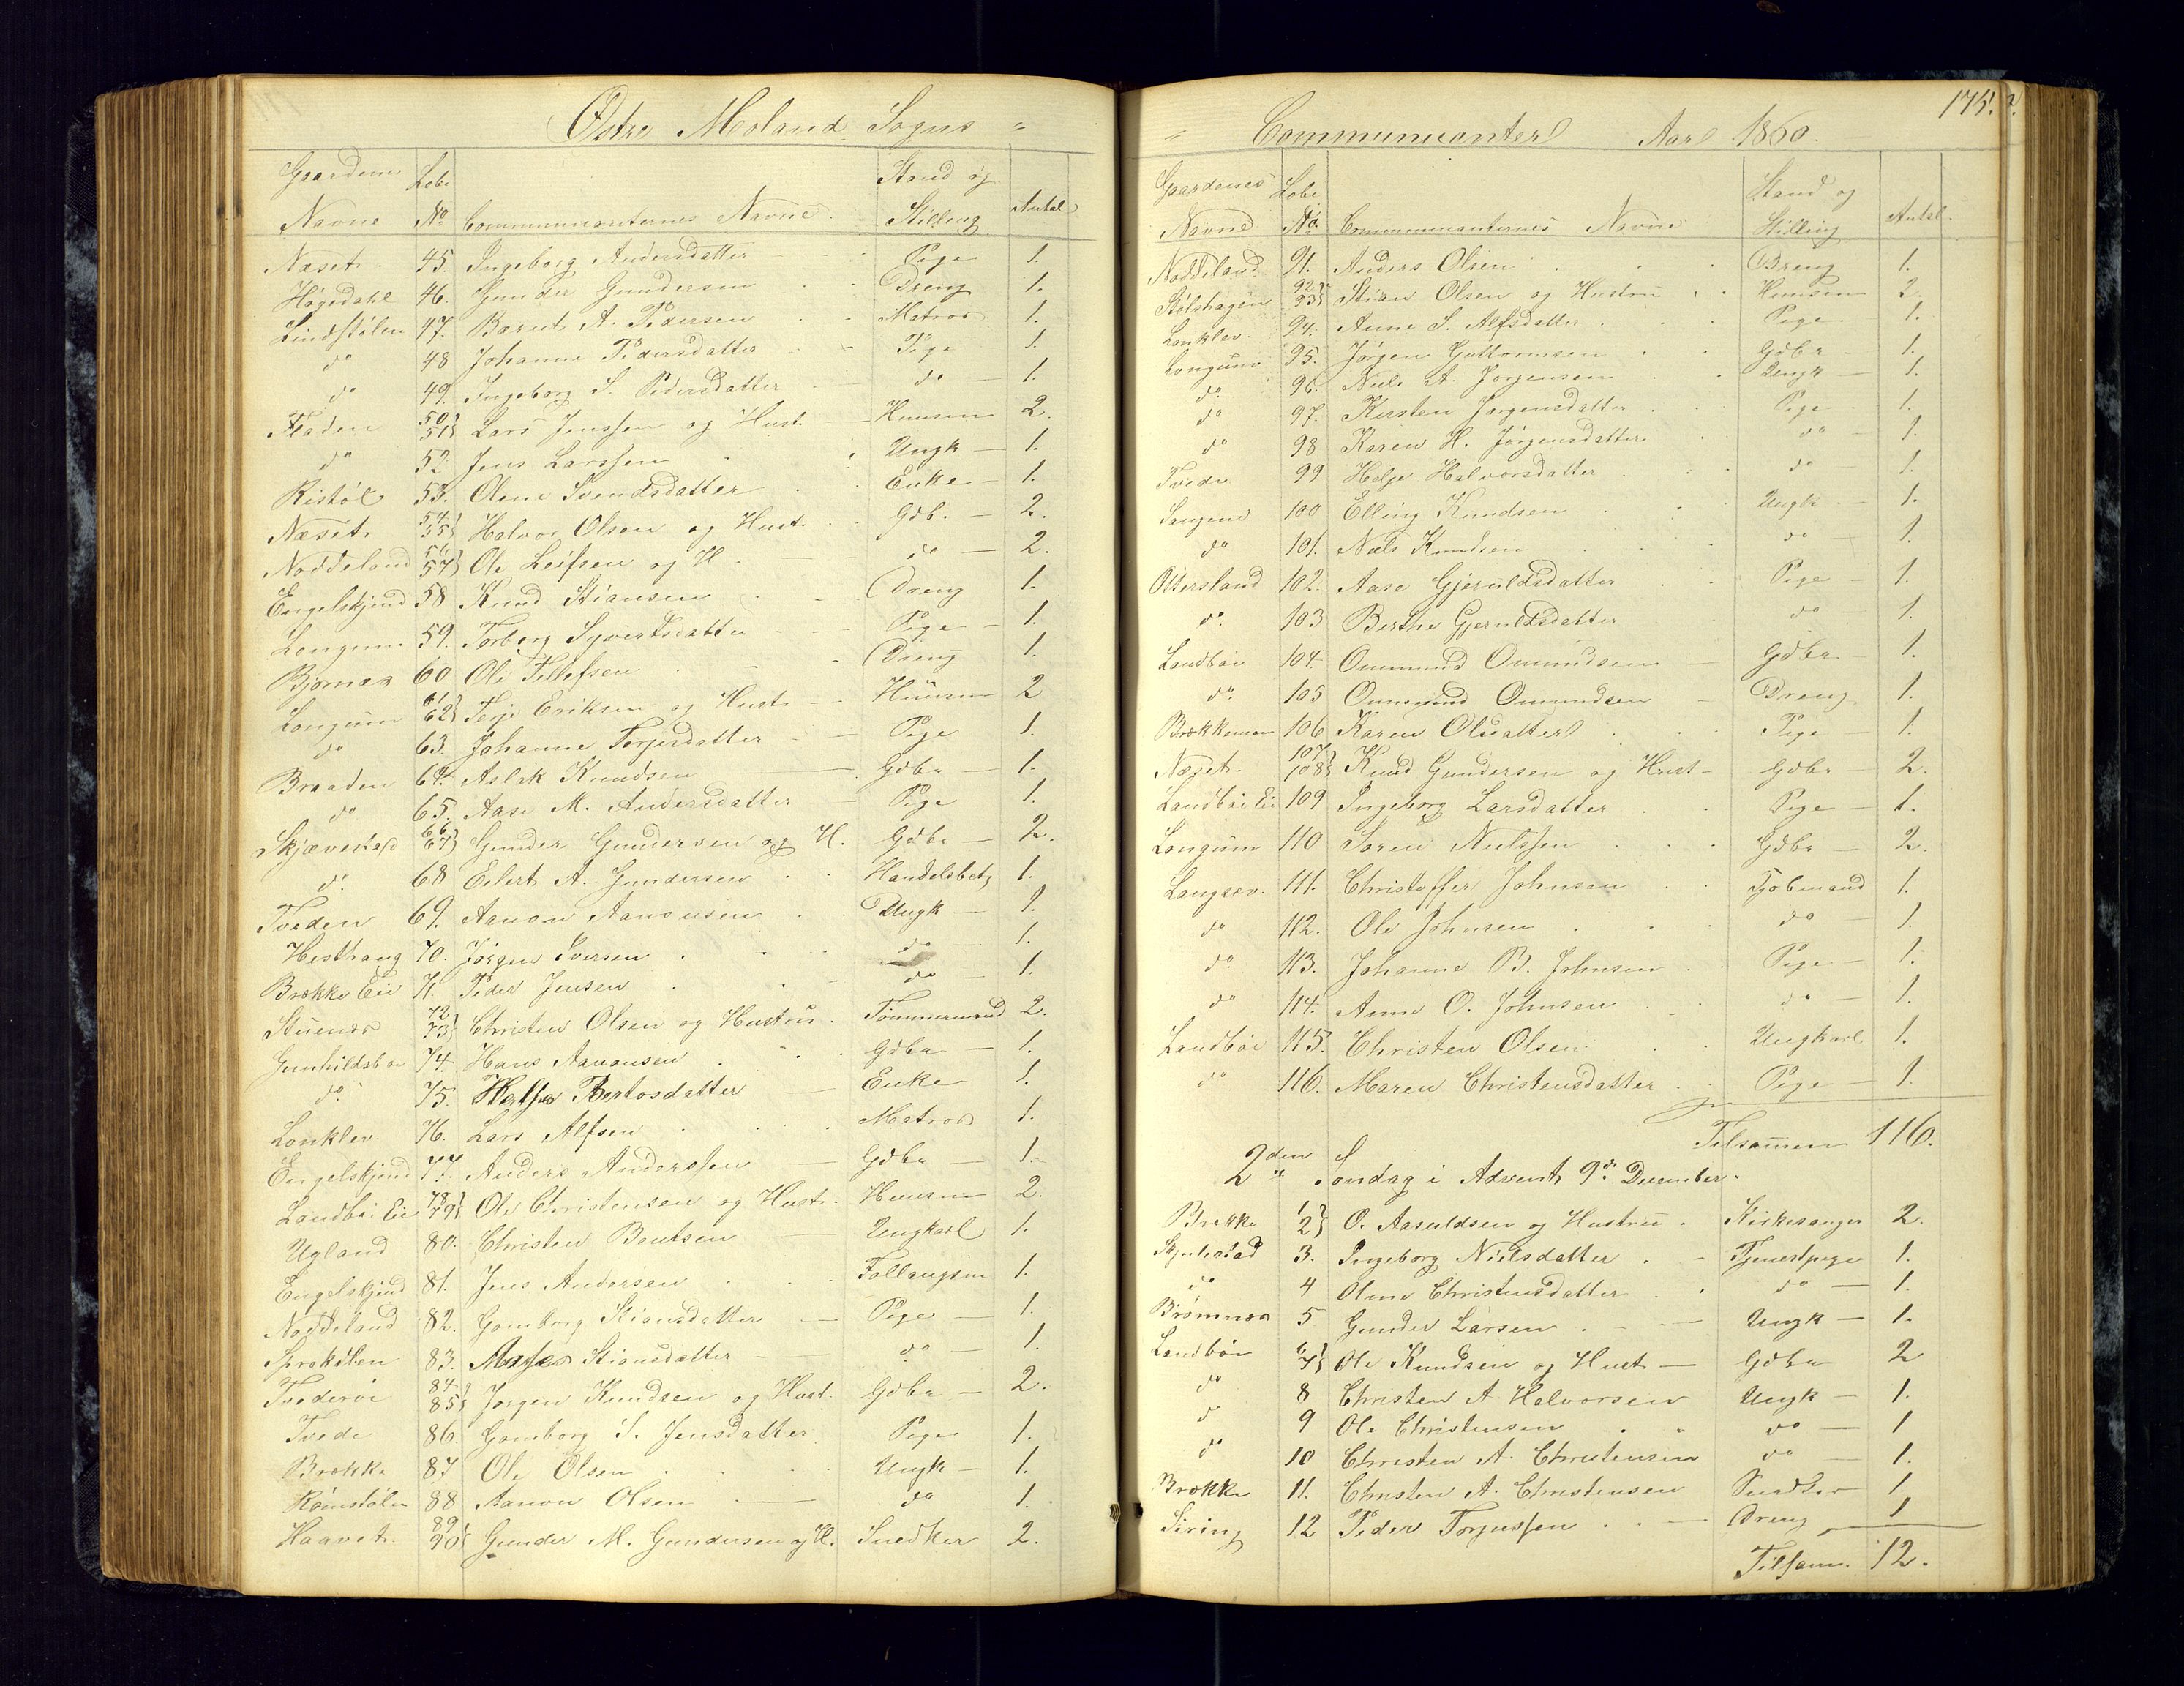 Østre Moland Sogns "
Gaardenes Løbe Stand og
Navne No Communicanternes Navne. Stilling Antal
Næset 45. Ingeborg Andersdatter Pige 1.
Høgedahl 46. Gunder Gundersen Dreng 1.
Lindstølen 47. Bernt A. Pedersen Matros 1.
do 48 Johanne Pedersdatter Pige 1.
do 49. Ingeborg S. Pedersdatter do 1.
Fladen 50 51 Lars Jenssen og Hust Huusm 2.
do 52 Jens Larssen Ungk 1.
Ristøl 53. Olene Svendsdatter Enke 1.
Næset 54 55 Halvor Olsen og Hust. Gdb. 2.
Noddeland 56 57 Ole Leifsen og H. do 2.
Engelskjønd 58 Knud Stiansen Dreng 1.
Longum 59. Torborg Syvertsdatter Pige 1.
Bjørnæs 60 Ole Tellefsen Dreng 1.
Longum 61 62 Terje Eriksen og Hust Huusm 2
do 63. Johanne Terjesdatter Pige 1.
Braaden 64. Aslak Knudsen Gdbr 1.
do 65. Aase M. Andersdatter Pige 1.
Skjævestad 66 67 Gunder Gundersen og H. Gdbr 2.
do. 68 Eilert A. Gundersen Handelsbetj 1.
Tveden 69. Aanon Aanonsen Ungk 1.
Hesthaug 70. Jørgen Iversen do 1.
Brække Eie 71. Peder Jensen do 1.
Stuenes 72 73 Christen Olsen og Hustru. Tømmermand 2.
Gunhildsbo 74. Hans Aanonsen Gdbr 1.
do. 75. Bertosdatter Enke 1.
Lonklev 76. Lars Alfsen Matros 1.
Engelskjønd 77. Anders Anderssen Gdbr 1.
Landbøe Eie 78 79 Ole Christensen og Hust. Huusm 2.
Ugland 80. Christen Bentsen Ungkarl 1.
Engelskjønd 81. Jens Andersen 1.
Noddeland 82. Gomborg Stiansdatter Pige 1.
83. Stiansdatter do 1.
Tvederøe 84 85 Jørgen Knudsen og Hust. Gdbr 2.
Tvede 86. Gomborg S. Jensdatter Pige 1.
Brække 87 Ole Olsen Ungk 1.
Rømstølen 88 Aanon Olsen do 1.
Haavet 89 90 Gunder M. Gundersen og H. Snedker 2.
175.
" Communicanter Aar 1860.
Gaardenes Løbe Stand og
Navne No. Communicanternes Navne Stilling Antal.
Noddeland 91. Anders Olsen Dreng 1.
Stølshagen 92 93 Stian Olsen og Hustru Huusm 2.
Lonklev 94. Anne S. Alfsdatter Pige 1.
Longum 95. Jørgen Guttormsen Gdbr 1.
do. 96. Niels A. Jørgensen Ungk 1.
do 97. Kirsten Jørgensdatter Pige 1.
do 98 Karen H. Jørgensdatter do 1.
Tvede 99 Helje Halvorsdatter do 1.
Songene 100 Elling Knudsen Ungk 1.
do 101. Niels Knudsen do 1.
Ottersland 102. Aase Gjeruldsdatter Pige 1.
do. 103 Berthe Gjeruldsdatter do 1.
Landbøe 104. Ommund Ommundsen Gdbr 1.
do. 105 Ommund Ommundsen Dreng 1.
Brækkemoen 106 Karen Olsdatter Pige 1.
Næset. 107 108 Knud Gundersen og Hust Gdbr 2.
Landbøe Eie 109 Ingeborg Larsdatter Pige 1.
Longum 110 Søren Nielssen Gdbr 2.
Langsæv. 111. Christoffer Johnsen Tjobmand 1.
do 112. Ole Johnsen do 1.
do. 113. Johanne B. Johnsen Pige 1.
do 114. Anne O. Johnsen do 1.
Landbøe 115. Christen Olsen Ungkarl 1.
do 116. Maren Christensdatter Pige 1.
Tilsammen 116.
2den Søndag i Advent 9de December.
Brække 1 2 O. Aasuldsen og Hustru Kirkesanger 2.
Skjulestad 3. Ingeborg Nielsdatter Tjenestpige 1.
do 4 Olene Christensdatter do 1.
5 Gunder Larsen Ungk 1.
Landbøe 6 7 Ole Knudsen og Hust Gdbr 2
do 8 Christen A Halvorsen Ungk 1.
do 9 Ole Christensen do 1
do 10 Christen A. Christensen do 1.
Brække 11. Christen A. Christensen Snedker 1
Siring 12 Peder Torjussen Dreng 1
Tilsam. 12.